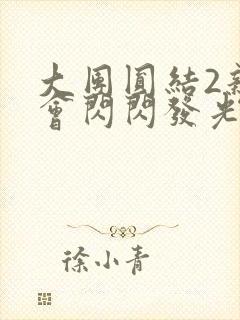 大團圓結2新
會閃閃發光
徐小青